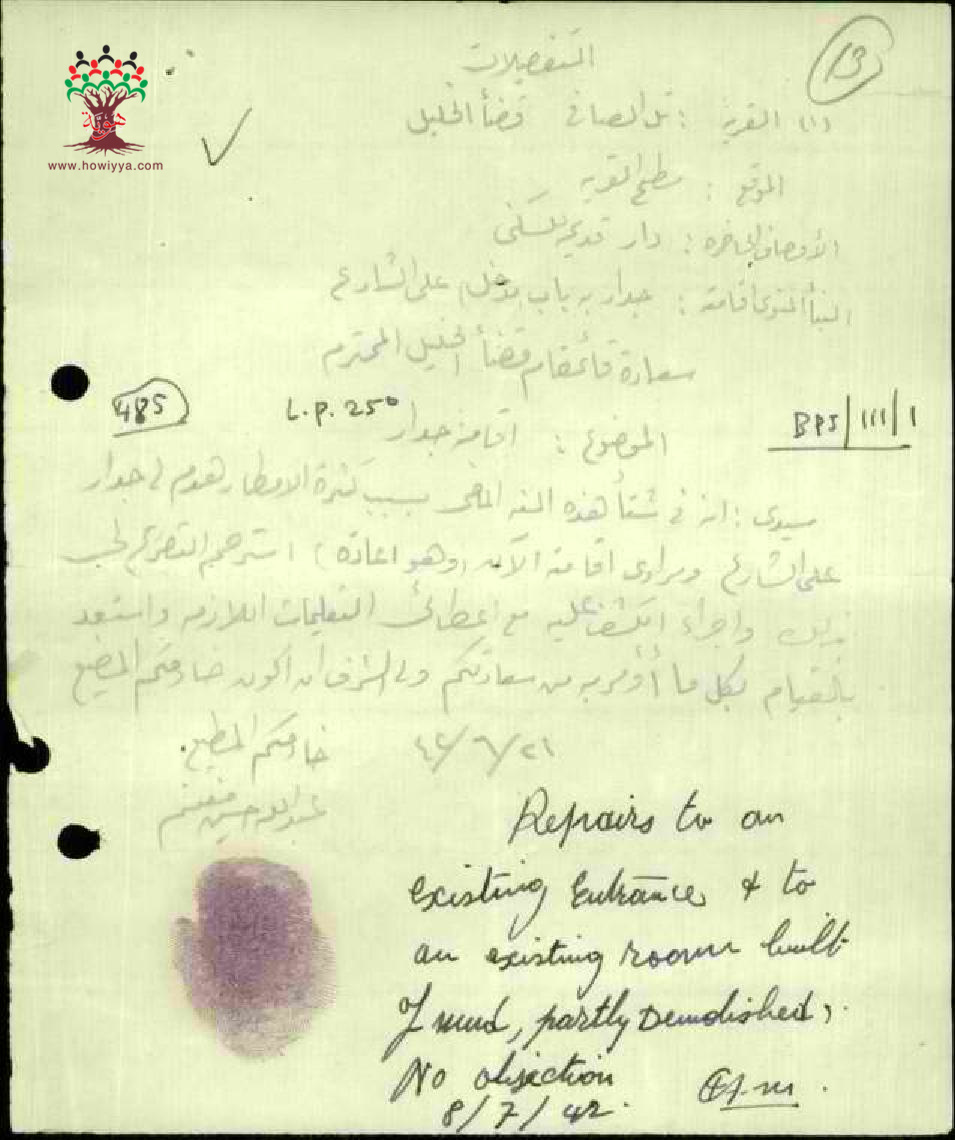 13
التفصيلات
(١) القرية : تل الصافي قضأ الخليل
www.howiyya.com
الموقع : مسطح القريه
الأوصاف الحاضره : دار قديمه للسكنى
البنأ المنوى اقامته : جدار به باب مدخل على الشارع
سعادة قائمقام قضأ الخليل المحترم
485 L.P. 250
BPS/111/1
الموضوع : اقامة جدار
سيدى : انه في شتأ هذه السنه الماضى بسبب كثرة الامطار هدم لى جدار
على الشارع ومرادى اقامته الآن (وهو اعاده) استرحم التصريح لى
بذلك واجراء الكشف عليه مع اعطائى التعليمات اللازمه واستعد
بالقيام بكل ما أؤمر به من سعادتكم ولى الشرف ان اكون خادمكم المطيع
٤٢/٦/٢١
خادمكم المطيع
عبدالله حسين
Repairs to an
existing Entrance & to
an existing room built
of mud, partly Demolished,
No objection
8/7/42.